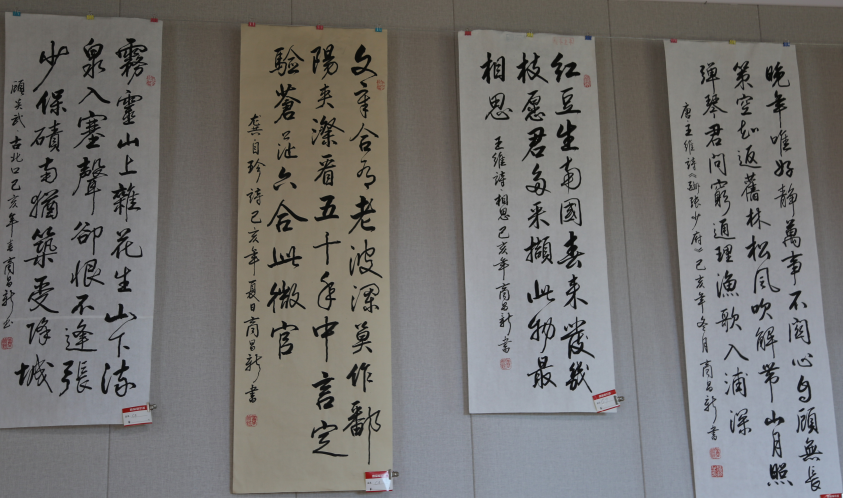 晚年唯好静萬事不関心自顧無長
策空知返舊林松風吹解带山月照
彈琴君问窮通理漁歌入浦深
唐王維詩《酬張少府》己亥年冬月商昌新書
红豆生南國春来發幾
枝愿君多采擷此物最
相思
王維詩·相思 己亥年商昌新書
文章合有老波瀾莫作鄱
陽夾漈看五十年中言定
驗蒼茫六合此微官
龚自珍詩己亥年夏日商昌新書
霧靈山上雜花生山下流
泉入塞聲卻恨不逢張
少保磧南猶築受降城
顾炎武古北口己亥年商昌新书